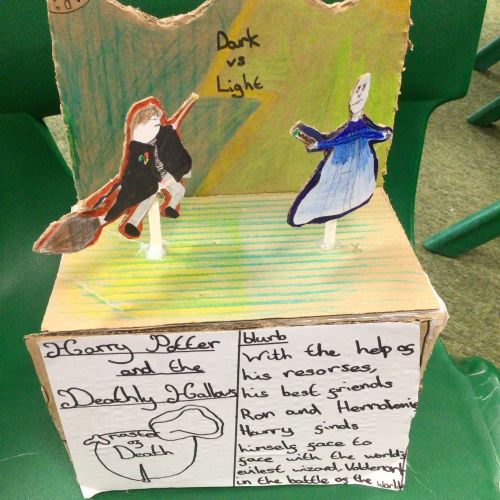 Dark
vs
Light
Harry Potter
and the
Deathly Hallows
master
of
Death
blurb
With the help of
his resorses,
his best friends
Ron and Hermoionie
Harry finds
himself face to
face with the worlds
evilest wizard, Voldemort
in the battle of the world